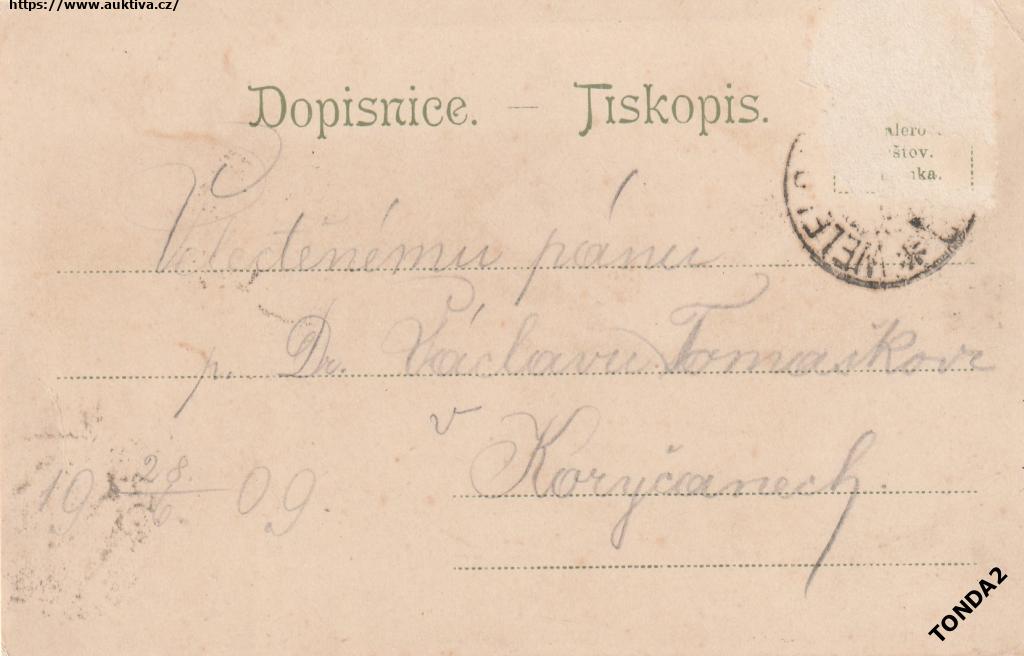 https://www.auktiva.cz/
Dopisnice. — Tiskopis.
štov.
Veleděnému pánu
p. Dr. Václavu Tomaškovi
v Koryčanech.
19 28./6 09
TONDA2